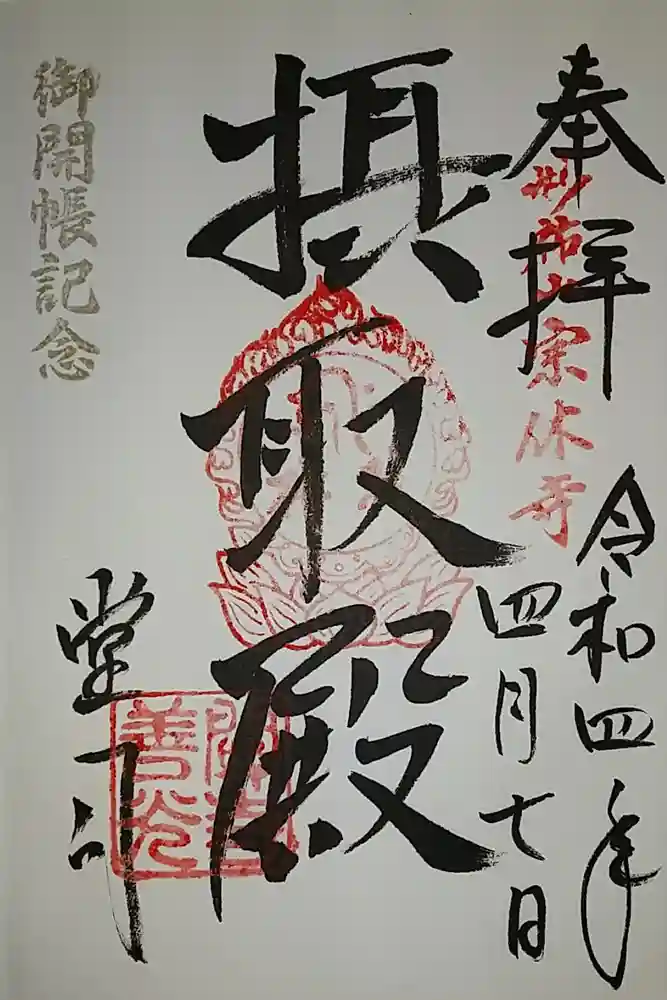 奉拝
妙祐山宗休寺
令和四年
四月七日
摂取殿
御開帳記念
堂司
善光